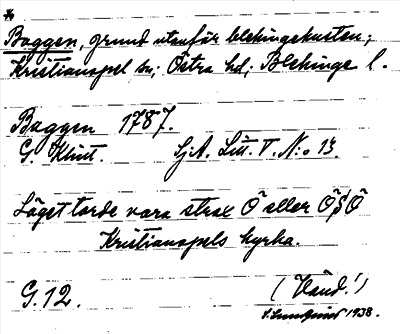 Baggen, grund utanför blekingekusten;
Kristianopel sn; Östra hd; Blekinge l.
Baggen 1787.
G. Klint. Sj.A. Litt. V. N:o 13.
Läget torde vara strax Ö eller ÖSÖ
Kristianopels kyrka.
G. 12. (Vänd!)
1938.